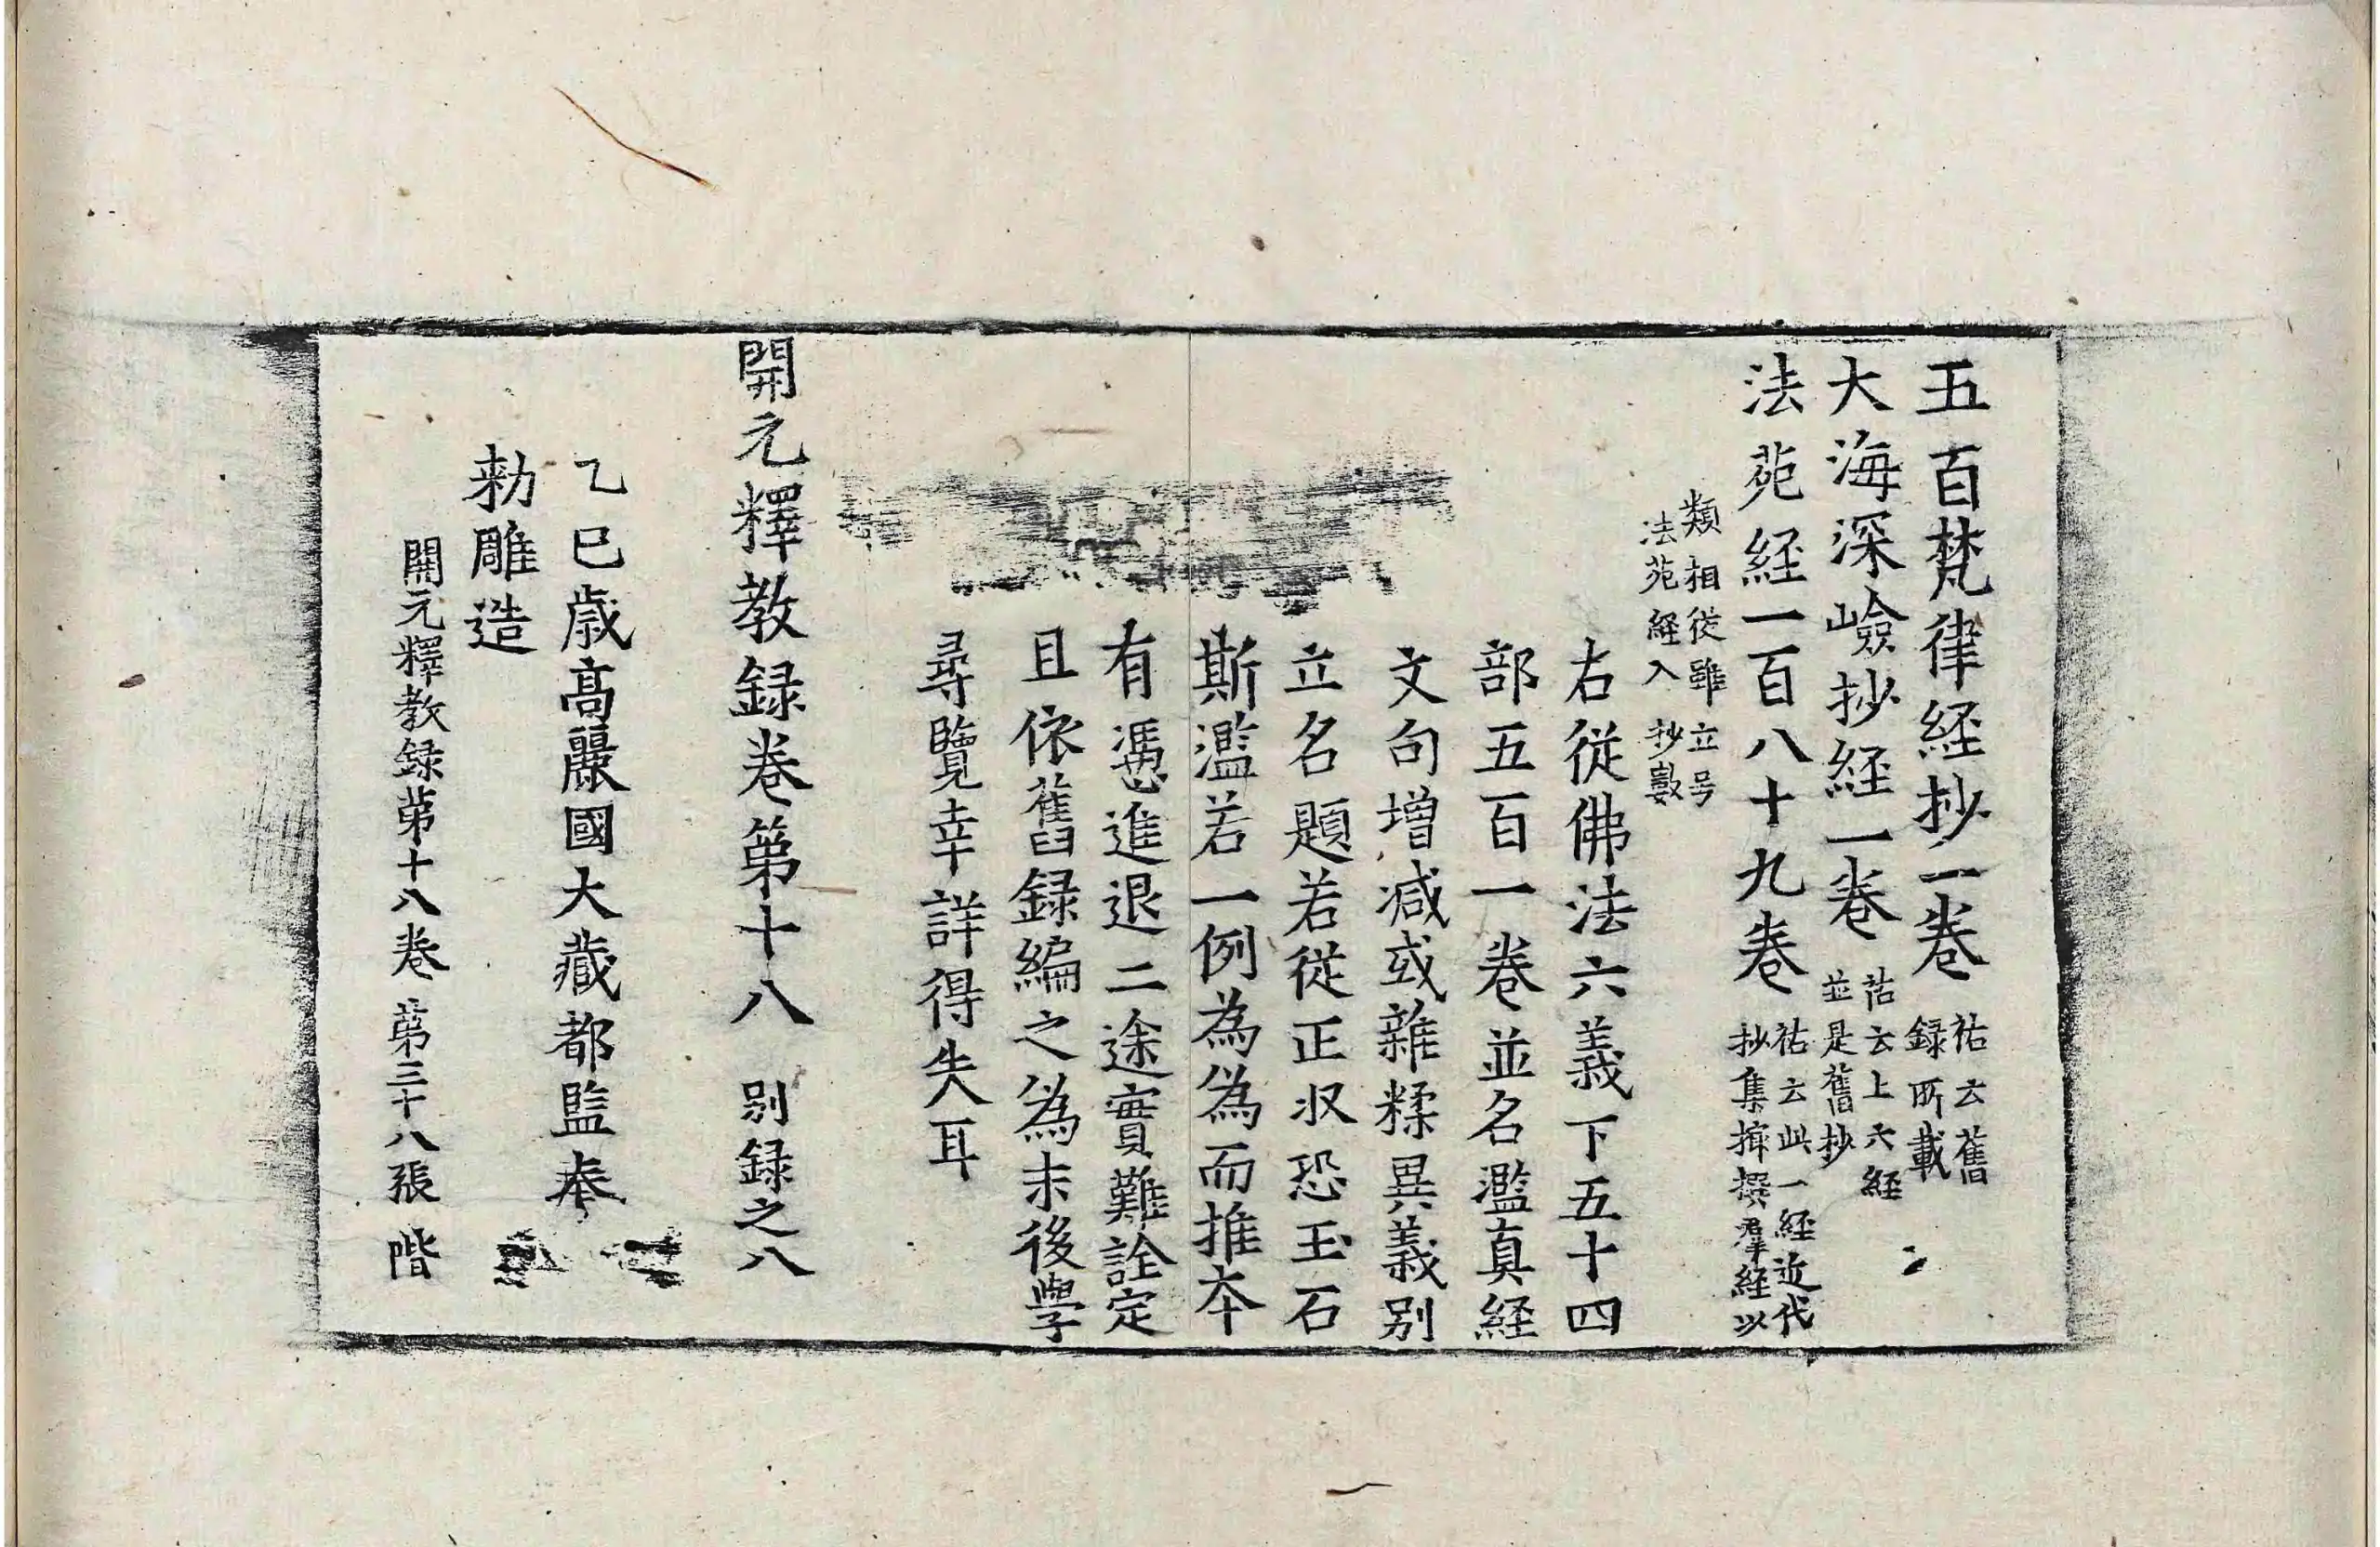 五百梵律経抄一巻 祐云舊
録所載
大海深嶮抄経一巻 祐云上六経
並是舊抄
法苑経一百八十九巻 祐云此一経近代
抄集撰羣経以
類相従雖立号
法苑経入抄數
右従佛法六義下五十四
部五百一巻並名濫真経
文句増减或雜糅異義別
立名題若從正収恐玉石
斯濫若一例為偽而推夲
有憑進退二途實難詮定
且依舊録編之偽末後學
尋覽幸詳得失耳
開元釋教録巻第十八 別録之八
乙巳歳高麗國大藏都監奉
勑雕造
開元釋教録第十八巻 第三十八張 階